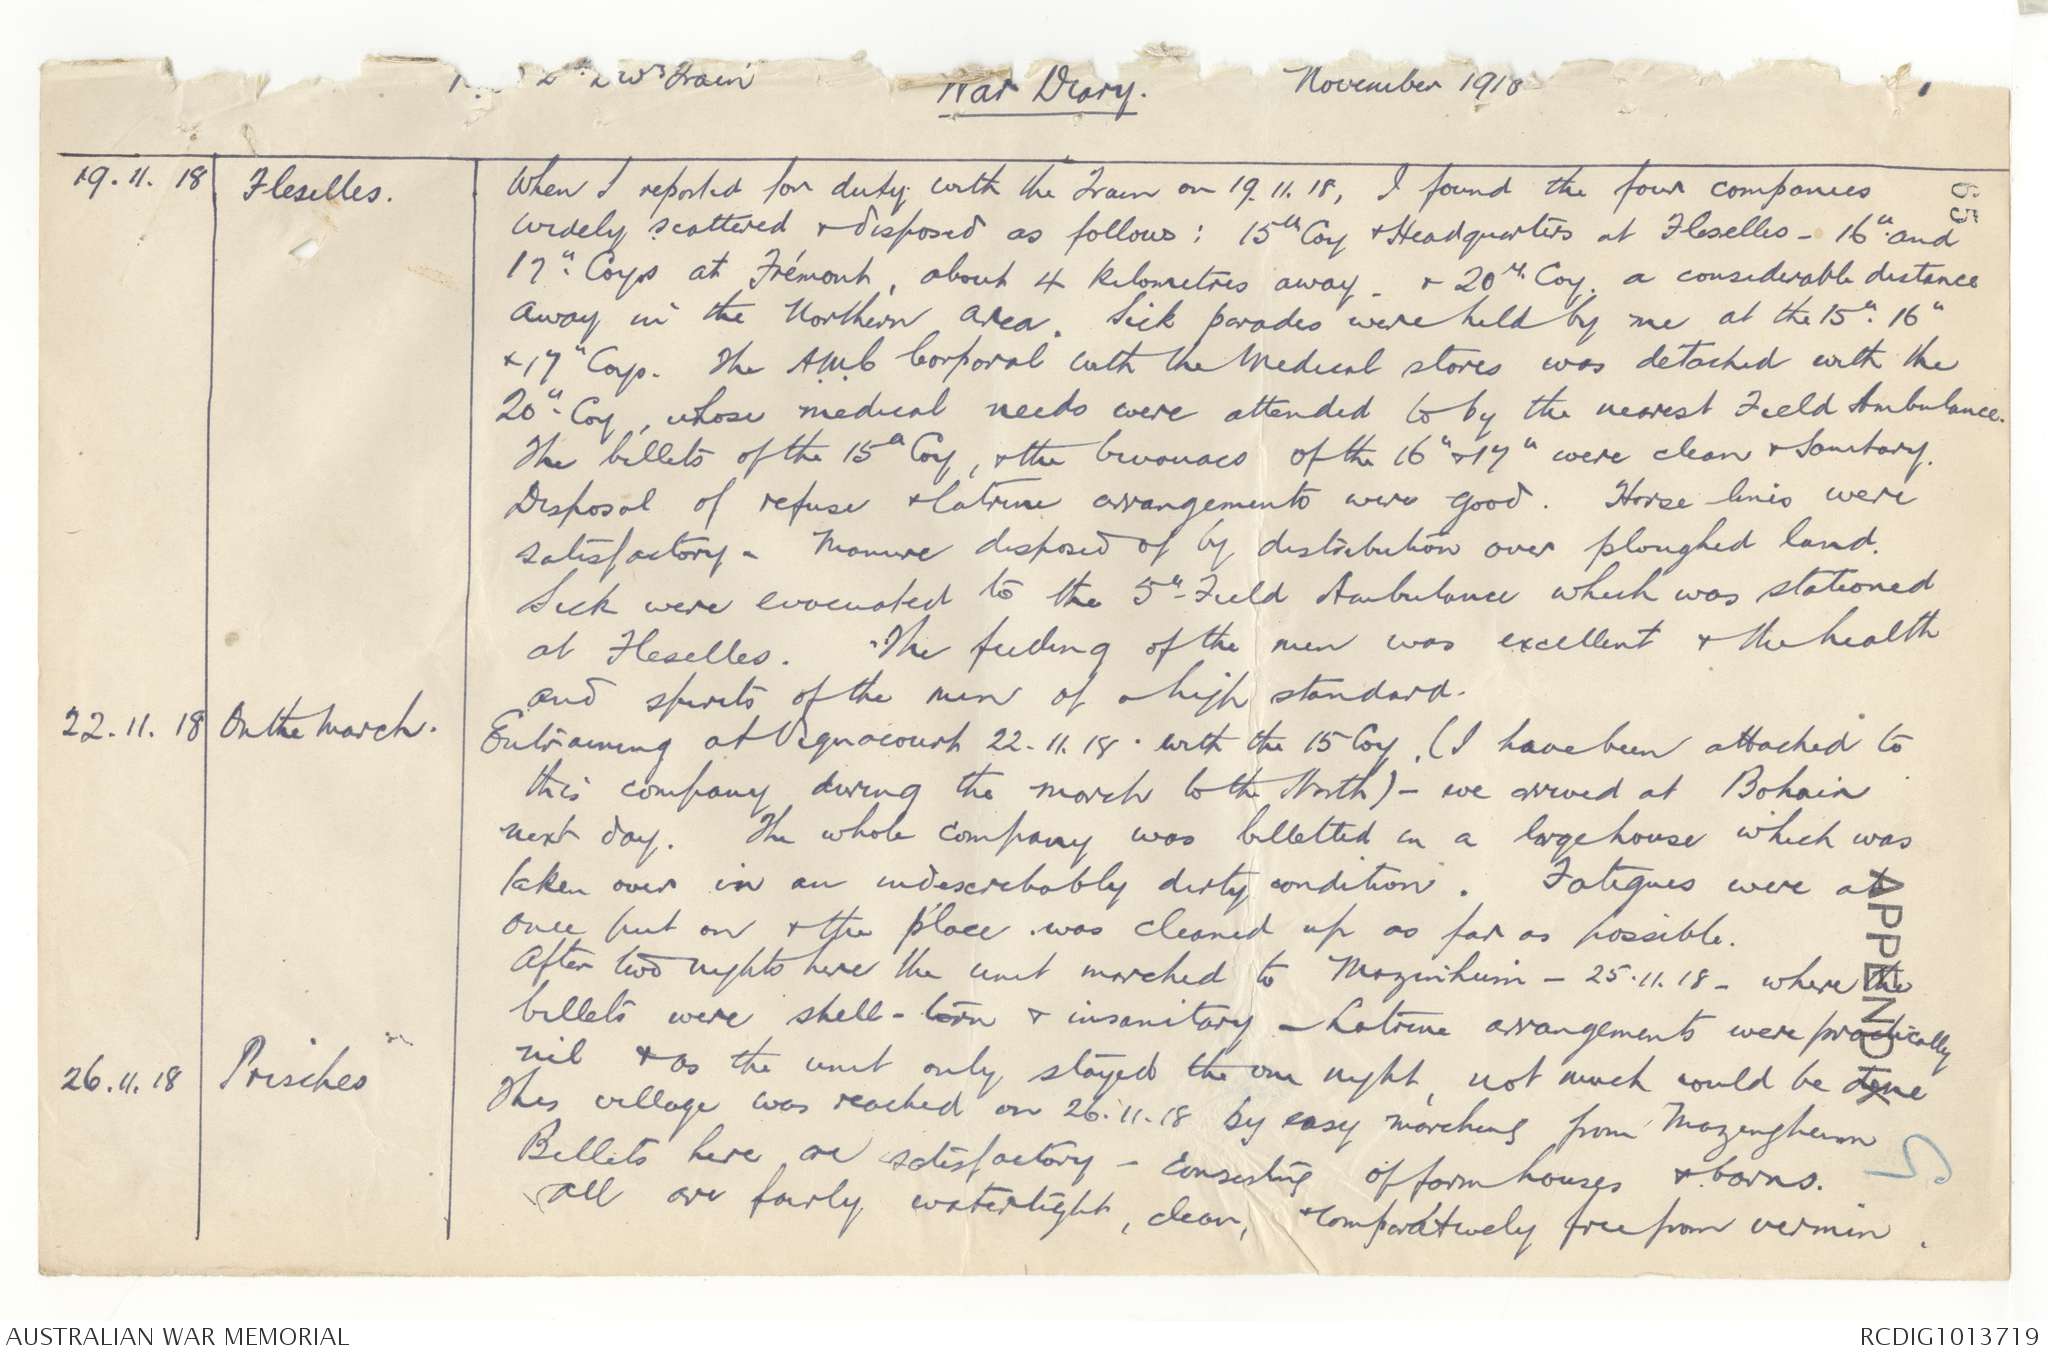 2nd Div Train War Diary. November 1918
19.11.18 Fleselles. When I reported for duty with the Train on 19.11.18, I found the four companies
widely scattered + disposed as follows: 15th Coy + Headquarters at Fleselles - 16th and
17th Coys at Frémont, about 4 kilometres away - + 20th Coy. a considerable distance
away in the Northern area. Sick parades were held by me at the 15th. 16th
+ 17th Coys. The A.M.C Corporal with the Medical stores was detached with the
20th Coy, whose medical needs were attended to by the nearest Field Ambulance.
The billets of the 15th Coy, + the bivouacs of the 16th + 17th were clean + sanitary.
Disposal of refuse + latrine arrangements were good. Horse lines were
satisfactory - Manure disposed of by distribution over ploughed land.
Sick were evacuated to the 5th Field Ambulance which was stationed
at Fleselles. The feeding of the men was excellent + the health
and spirits of the men of a high standard.
22.11.18 On the March. Entraining at Vignacourt 22.11.18 with the 15 Coy, (I have been attached to
this company during the march to the North) - we arrived at Bohain
next day. The whole company was billetted in a large house which was
taken over in an indescribably dirty condition. Fatigues were at
once put on + the place was cleaned up as far as possible.
After two nights here the unit marched to Mazinheim - 25.11.18 - where the
billets were shell-torn + insanitary - Latrine arrangements were practically
nil + as the unit only stayed the one night, not much could be done
26.11.18 Prisches This village was reached on 26.11.18 by easy marching from Mazengheim
Billets here are satisfactory - consisting of farm houses + barns.
All are fairly watertight, clean, + comparatively free from vermin.
65
APPENDIX
5
AUSTRALIAN WAR MEMORIAL RCDIG1013719